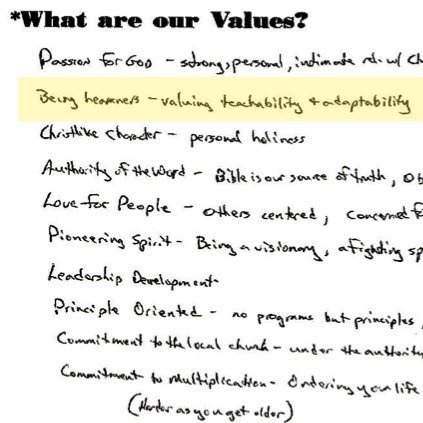 *What are our Values?
Passion for God - strong, personal, intimate rel. w/ Ch
Being learners - valuing teachability & adaptability
Christlike Character - personal holiness
Authority of the Word - Bible is our source of truth, Ob
Love for People - others centered, concerned f
Pioneering Spirit - Being a visionary, a fighting sp
Leadership Development -
Principle Oriented - no programs but principles,
Commitment to the local church - under the authority
Commitment to Multiplication - Ordering your life
(Harder as you get older)